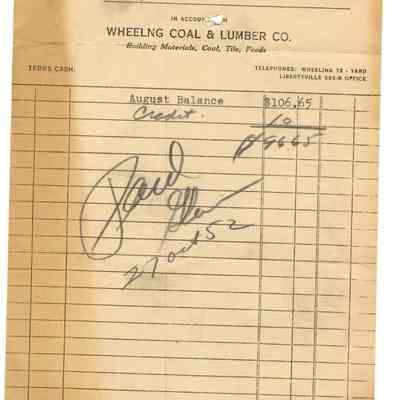 IN ACCOUNT
WHEELNG COAL & LUMBER CO.
Building Materials, Coal, Tile, Feeds
TERMS CASH.
TELEPHONES: WHEELING 78 - YARD
LIBERTYVILLE 595-R OFFICE
August Balance $106.65
Credit. 10
$ 96 65
Paid
27 Oct 52